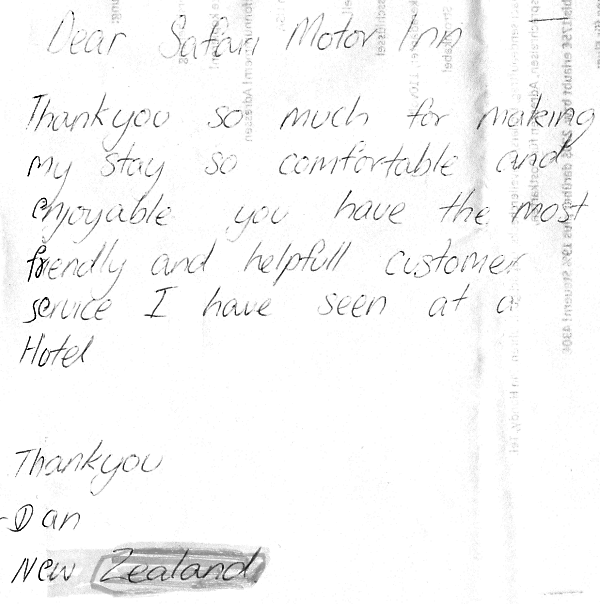 Dear Safari Motor Inn
Thankyou so much for making
my stay so comfortable and
enjoyable you have the most
friendly and helpfull customer
service I have seen at a
Hotel
Thankyou
-Dan
New Zealand